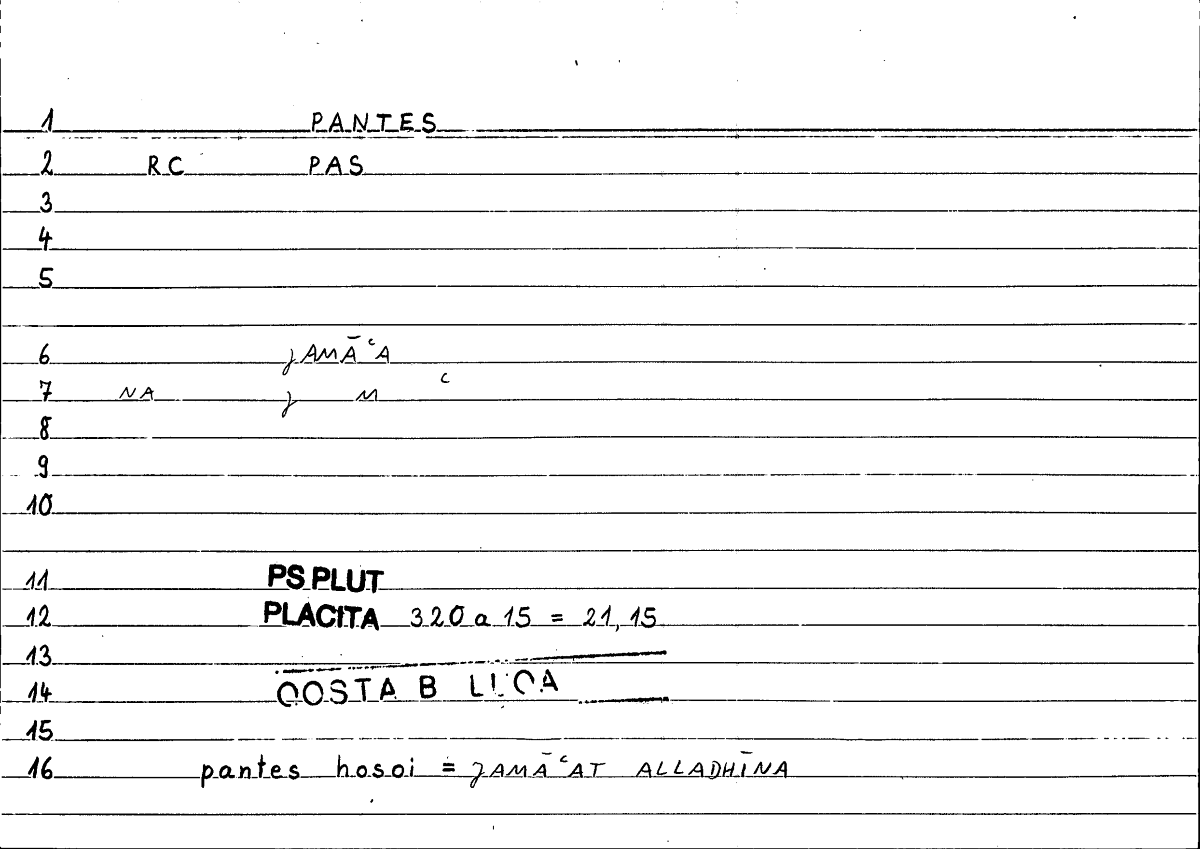 1 PANTES
2 RC PAS
3
4
5
6 ȷAMĀʿA
7 NA ȷ M ʿ
8
9
10
11 PS.PLUT
12 PLACITA 320 a 15 = 21,15
13
14 QOSTA B LUQA
15
16 pantes hosoi = ȷAMĀʿAT ALLADHĪNA